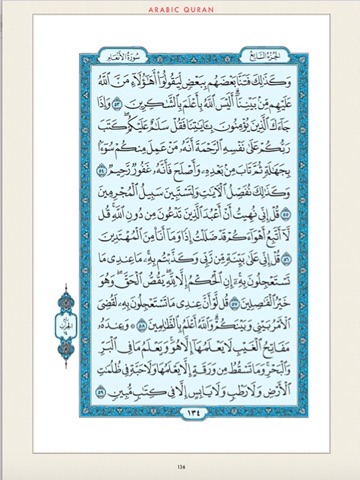 ARABIC QURAN
سورة الأنعام
الجزء السابع
وَكَذَٰلِكَ فَتَنَّا بَعْضَهُم بِبَعْضٍ لِّيَقُولُوٓا۟ أَهَٰٓؤُلَآءِ مَنَّ ٱللَّهُ
عَلَيْهِم مِّنۢ بَيْنِنَآ ۗ أَلَيْسَ ٱللَّهُ بِأَعْلَمَ بِٱلشَّٰكِرِينَ ٥٣ وَإِذَا
جَآءَكَ ٱلَّذِينَ يُؤْمِنُونَ بِـَٔايَٰتِنَا فَقُلْ سَلَٰمٌ عَلَيْكُمْ ۖ كَتَبَ
رَبُّكُمْ عَلَىٰ نَفْسِهِ ٱلرَّحْمَةَ ۖ أَنَّهُۥ مَنْ عَمِلَ مِنكُمْ سُوٓءًۢا
بِجَهَٰلَةٍ ثُمَّ تَابَ مِنۢ بَعْدِهِۦ وَأَصْلَحَ فَأَنَّهُۥ غَفُورٌ رَّحِيمٌ ٥٤
وَكَذَٰلِكَ نُفَصِّلُ ٱلْـَٔايَٰتِ وَلِتَسْتَبِينَ سَبِيلُ ٱلْمُجْرِمِينَ
٥٥ قُلْ إِنِّى نُهِيتُ أَنْ أَعْبُدَ ٱلَّذِينَ تَدْعُونَ مِن دُونِ ٱللَّهِ ۚ قُل
لَّآ أَتَّبِعُ أَهْوَآءَكُمْ ۙ قَدْ ضَلَلْتُ إِذًا وَمَآ أَنَا۠ مِنَ ٱلْمُهْتَدِينَ
٥٦ قُلْ إِنِّى عَلَىٰ بَيِّنَةٍ مِّن رَّبِّى وَكَذَّبْتُم بِهِۦ ۚ مَا عِندِى مَا
تَسْتَعْجِلُونَ بِهِۦٓ ۚ إِنِ ٱلْحُكْمُ إِلَّا لِلَّهِ ۖ يَقُصُّ ٱلْحَقَّ ۖ وَهُوَ
خَيْرُ ٱلْفَٰصِلِينَ ٥٧ قُل لَّوْ أَنَّ عِندِى مَا تَسْتَعْجِلُونَ بِهِۦ لَقُضِىَ
ٱلْأَمْرُ بَيْنِى وَبَيْنَكُمْ ۗ وَٱللَّهُ أَعْلَمُ بِٱلظَّٰلِمِينَ ٥٨ وَعِندَهُۥ
مَفَاتِحُ ٱلْغَيْبِ لَا يَعْلَمُهَآ إِلَّا هُوَ ۚ وَيَعْلَمُ مَا فِى ٱلْبَرِّ
وَٱلْبَحْرِ ۚ وَمَا تَسْقُطُ مِن وَرَقَةٍ إِلَّا يَعْلَمُهَا وَلَا حَبَّةٍ فِى ظُلُمَٰتِ
ٱلْأَرْضِ وَلَا رَطْبٍ وَلَا يَابِسٍ إِلَّا فِى كِتَٰبٍ مُّبِينٍ ٥٩
١٣٤
134